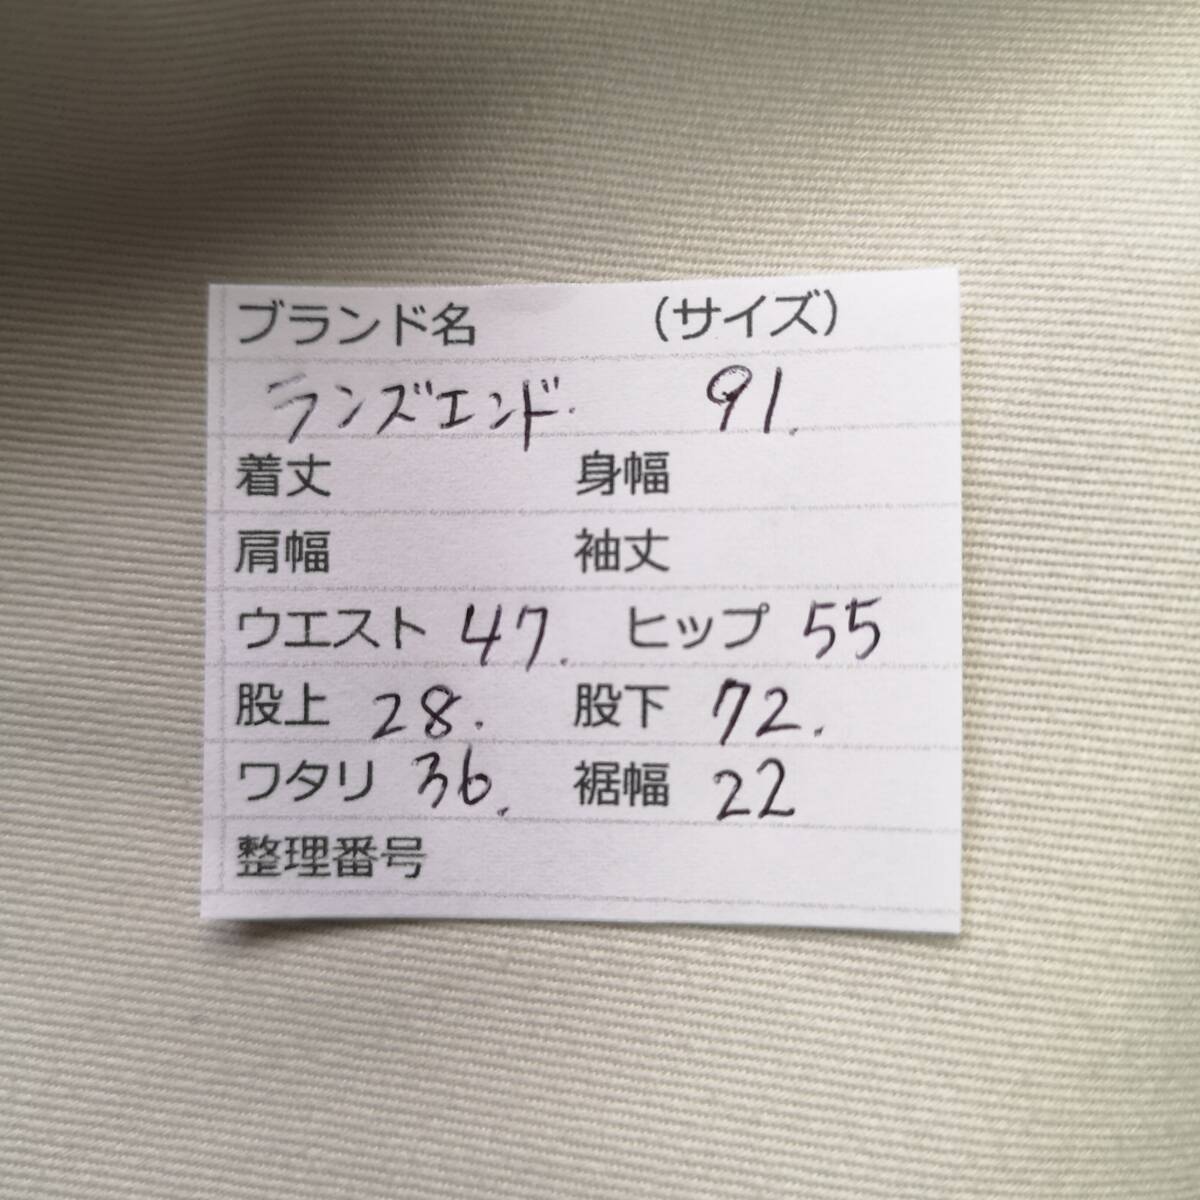 ブランド名 （サイズ）
ランズエンド. 91.
着丈 身幅
肩幅 袖丈
ウエスト 47. ヒップ 55
股上 28. 股下 72.
ワタリ 36. 裾幅 22
整理番号